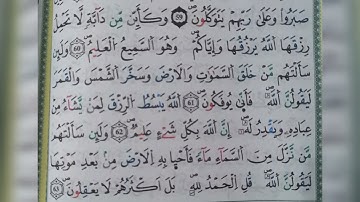 صَبَرُوا وَعَلَىٰ رَبِّهِمْ يَتَوَكَّلُونَ ﴿59﴾ وَكَأَيِّنْ مِنْ دَابَّةٍ لَا تَحْمِلُ
رِزْقَهَا اللَّهُ يَرْزُقُهَا وَإِيَّاكُمْ وَهُوَ السَّمِيعُ الْعَلِيمُ ﴿60﴾ وَلَئِنْ
سَأَلْتَهُمْ مَنْ خَلَقَ السَّمٰوٰتِ وَالْأَرْضَ وَسَخَّرَ الشَّمْسَ وَالْقَمَرَ
لَيَقُولُنَّ اللَّهُ فَأَنَّىٰ يُؤْفَكُونَ ﴿61﴾ اَللَّهُ يَبْسُطُ الرِّزْقَ لِمَنْ يَشَاءُ مِنْ
عِبَادِهِ وَيَقْدِرُ لَهُ إِنَّ اللَّهَ بِكُلِّ شَيْءٍ عَلِيمٌ ﴿62﴾ وَلَئِنْ سَأَلْتَهُمْ
مَنْ نَزَّلَ مِنَ السَّمَاءِ مَاءً فَأَحْيَا بِهِ الْأَرْضَ مِنْ بَعْدِ مَوْتِهَا
لَيَقُولُنَّ اللَّهُ قُلِ الْحَمْدُ لِلَّهِ بَلْ أَكْثَرُهُمْ لَا يَعْقِلُونَ ﴿63﴾